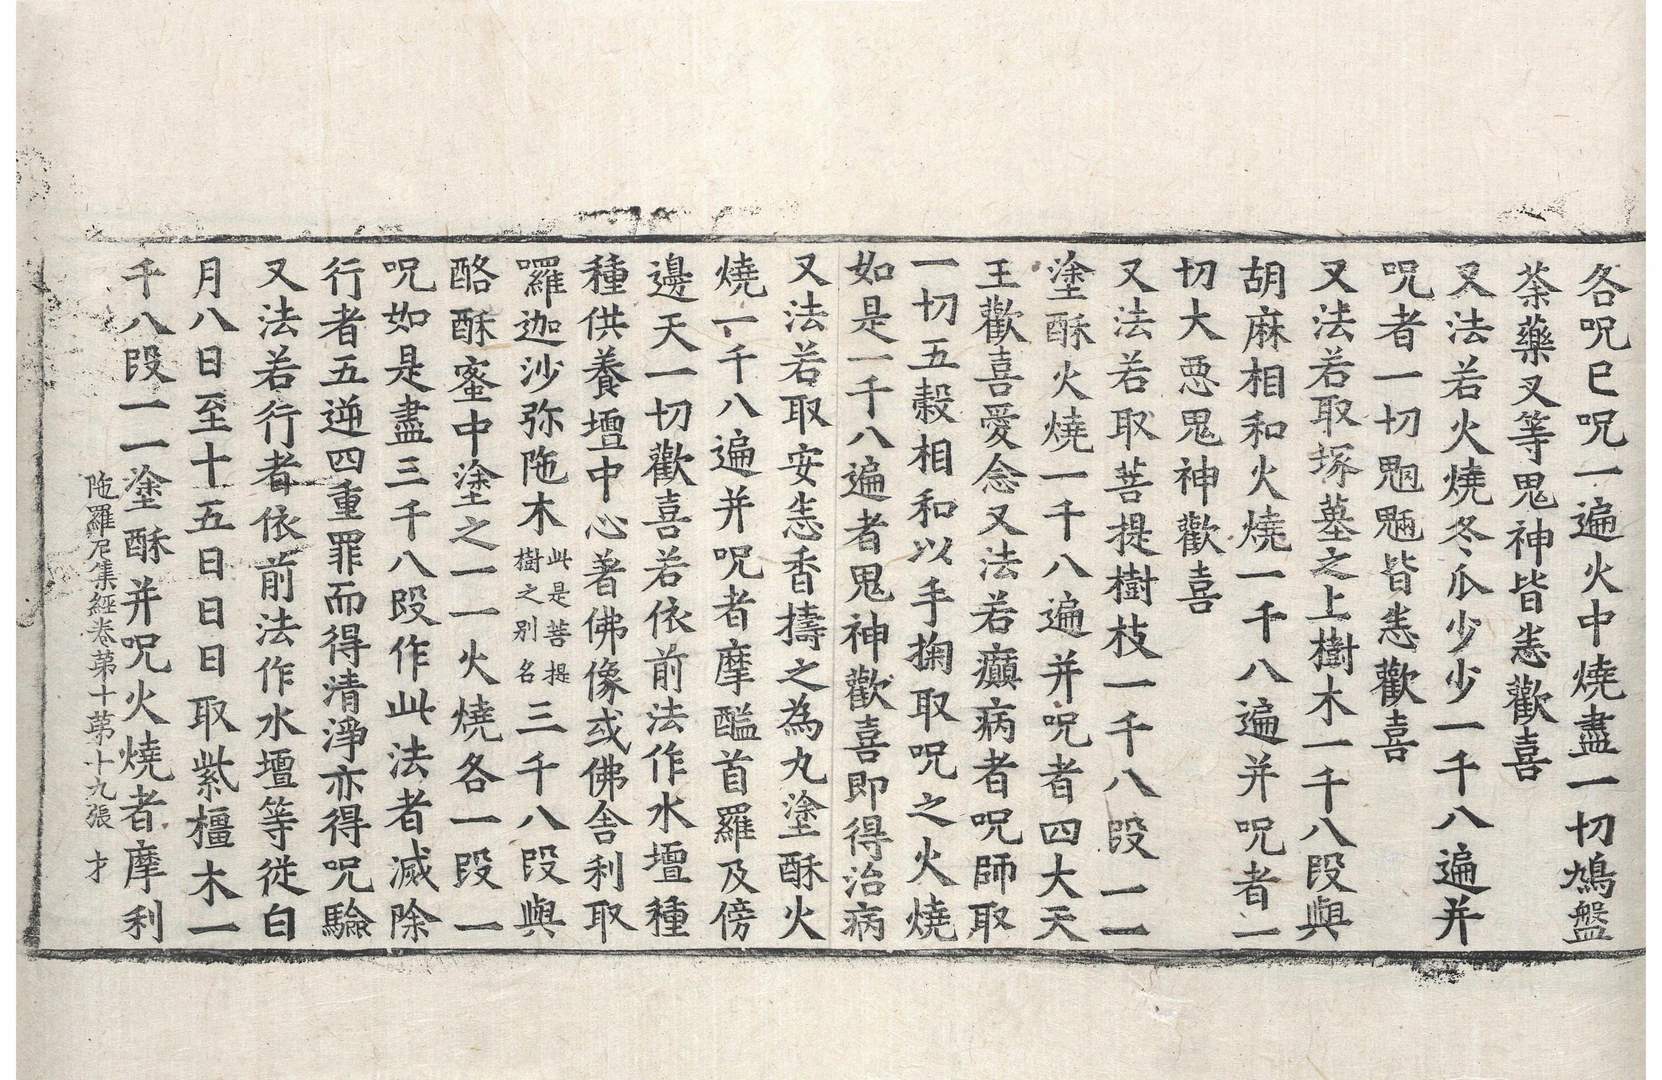 各呪已呪一遍火中燒盡一切鳩盤
茶藥叉等鬼神皆悉歡喜
又法若火燒冬瓜少少一千八遍并
呪者一切魍魎皆悉歡喜
又法若取塚墓之上樹木一千八段與
胡麻相和火燒一千八遍并呪者一
切大惡鬼神歡喜
又法若取菩提樹枝一千八段一一
塗酥火燒一千八遍并呪者四大天
王歡喜愛念又法若癲病者呪師取
一切五穀相和以手掬取呪之火燒
如是一千八遍者鬼神歡喜即得治病
又法若取安悉香擣之為丸塗酥火
燒一千八遍并呪者摩醯首羅及傍
邊天一切歡喜若依前法作水壇種
種供養壇中心著佛像或佛舍利取
囉迦沙弥陁木此是菩提樹之別名三千八段與
酪酥蜜中塗之一一火燒各一段一
呪如是盡三千八段作此法者滅除
行者五逆四重罪而得清淨亦得呪驗
又法若行者依前法作水壇等從白
月八日至十五日日日取紫橿木一
千八段一一塗酥并呪火燒者摩利
陁羅尼集經卷第十第十九張 才